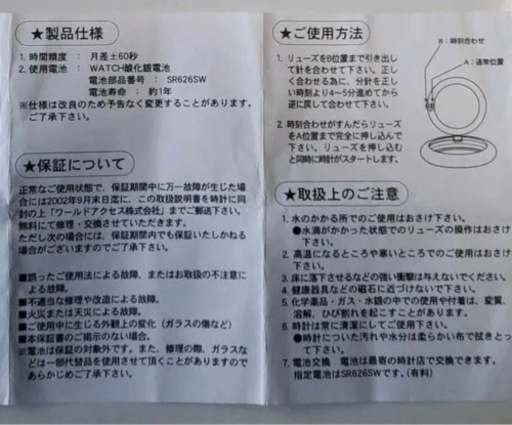 ★製品仕様
1. 時間精度 ： 月差±60秒
2. 使用電池 ： WATCH酸化銀電池
電池部品番号 ： SR626SW
電池寿命 ： 約1年
※仕様は改良のため予告なく変更することがあります。
ご了承下さい。
★保証について
正常なご使用状態で、保証期間中に万一故障が生じた場
合には2002年9月末日迄に、この取扱説明書を時計に同
封の上「ワールドアクセス株式会社」までご郵送下さい。
無料にて修理・交換させていただきます。
ただし次の場合には、保証期間内でも保証いたしかねる
場合がございますのでご了承下さい。
■誤ったご使用法による故障、またはお取扱の不注意に
よる故障。
■不適当な修理や改造による故障。
■火災または天災による故障。
■ご使用中に生じる外観上の変化（ガラスの傷など）
■本保証書のご掲示のない場合。
※電池は保証の対象外です。また、修理の際、ガラスな
どは一部代替品を使用させて頂くことがありますので
あらかじめご了承下さい。
★ご使用方法
1. リューズをB位置まで引き出し
て針を合わせて下さい。正し
く合わせる為に、分針を正し
い時刻より4〜5分進めてから
逆に戻して合わせて下さい。
2. 時刻合わせがすんだらリューズ
をA位置まで完全に押し込んで
下さい。リューズを押し込む
と同時に時計がスタートします。
B：時刻合わせ
A：通常位置
★取扱上のご注意
1. 水のかかる所でのご使用はおさけ下さい。
●水滴がかかった状態でのリューズの操作はおさけ
下さい。
2. 高温になるところや寒いところでのご使用はおさけ
下さい。
3. 床に落下させるなどの強い衝撃は与えないでください。
4. 健康器具などの磁石に近づけないで下さい。
5. 化学薬品・ガス・水銀の中での使用や付着は、変質、
溶解、ひび割れを起こすことがあります。
6. 時計は常に清潔にしてご使用下さい。
●時計についた汚れや水分は柔らかい布で拭きとっ
て下さい。
7. 電池交換 電池は最寄の時計店で交換できます。
指定電池はSR626SWです。（有料）